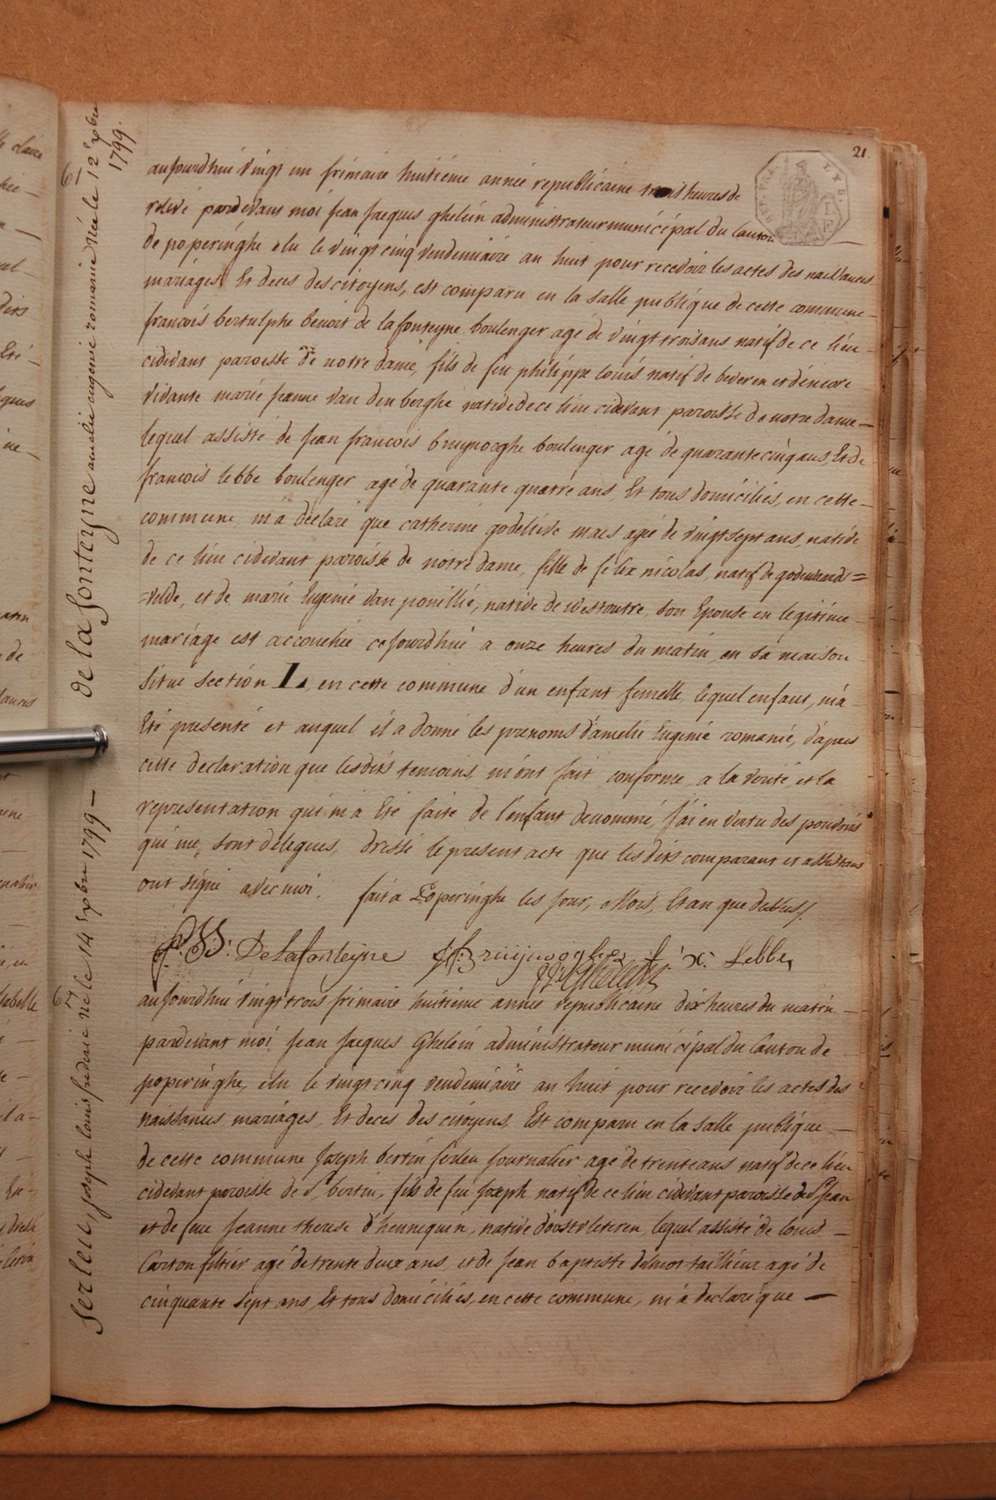 21.
61
de la Fonteyne amelie eugenie romanie née le 12 Xbre
1799.
aujourdhui vingt un frimaire huitiéme année républicaine trois heures de
relevé pardevant moi jean jacques ghelein administrateur municépal du Canton
de poperinghe elu le vingt cinq vendemiaire an huit pour recevoir les actes des naissances
mariages, Et deces des citoyens, est comparu en la salle publique de cette commune
francois bertulphe benoit de la fonteyne boulenger agé de vingt trois ans natif de ce lieu
cidevant paroisse de notre dame, fils de feu philippe louis natif de beveren et demeure
vivante marie jeanne van den berghe native de ce lieu cidevant paroisse de notre dame
lequel assisté de jean francois bruynooghe boulenger agé de quarante cinq ans, Et de
francois lebbe boulenger agé de quarante quatre ans Et tous domiciliés, en cette
commune, m'a déclaré que catherine godelieve maes agé de vingt sept ans, native
de ce lieu cidevant paroisse de notre dame, fille de felix nicolas, natif de godewaers=
=velde, et de marie Eugenie van pouillie, native de westoutre, son Epouse en legitime
mariage est accouchée cejourdhui a onze heures du matin en sa maison
situé section L, en cette commune d'un enfant femelle lequel enfant, m'a
Eté presenté et auquel il a donné les prenoms d'amelie Eugenie romanie, d'apres
cette declaration que lesdits temoins m'ont fait conforme a la verité, et la
representation qui m'a Eté faite de l'enfant denommé, j'ai en vertu des pouvoirs
qui me, sont délegués, dressé le present acte que lesdits comparant et assistans
ont signé avec moi. fait a Poperinghe les jour, Mois, Et an que dessus.
De Lafonteyne J. f. Bruynooghe f: x: Lebbe
J J Ghelein
Serleu, joseph louis frederic né le 14 Xbre 1799
aujourdhui vingt trois frimaire huitiéme année republicaine dix heures du matin
pardevant moi, Jean Jacques Ghelein administrateur municipal du Canton de
poperinghe, elu le vingt cinq vendemiaire an huit pour recevoir les actes des
naissances mariages, Et deces des citoyens, Est comparu en la salle publique
de cette commune Joseph bertin serleu journalier agé de trente ans natif de ce lieu
cidevant paroisse de St bertin, fils de feu Joseph natif de ce lieu cidevant paroisse de St Jean
et de feue Jeanne therese D'hennequin, native d'oostvleteren lequel assisté de louis
Carton filtier agé de trente deux ans, et de Jean baptiste delmot tailleur agé de
cinquante sept ans, Et tous domiciliés, en cette commune, m'a declaré que